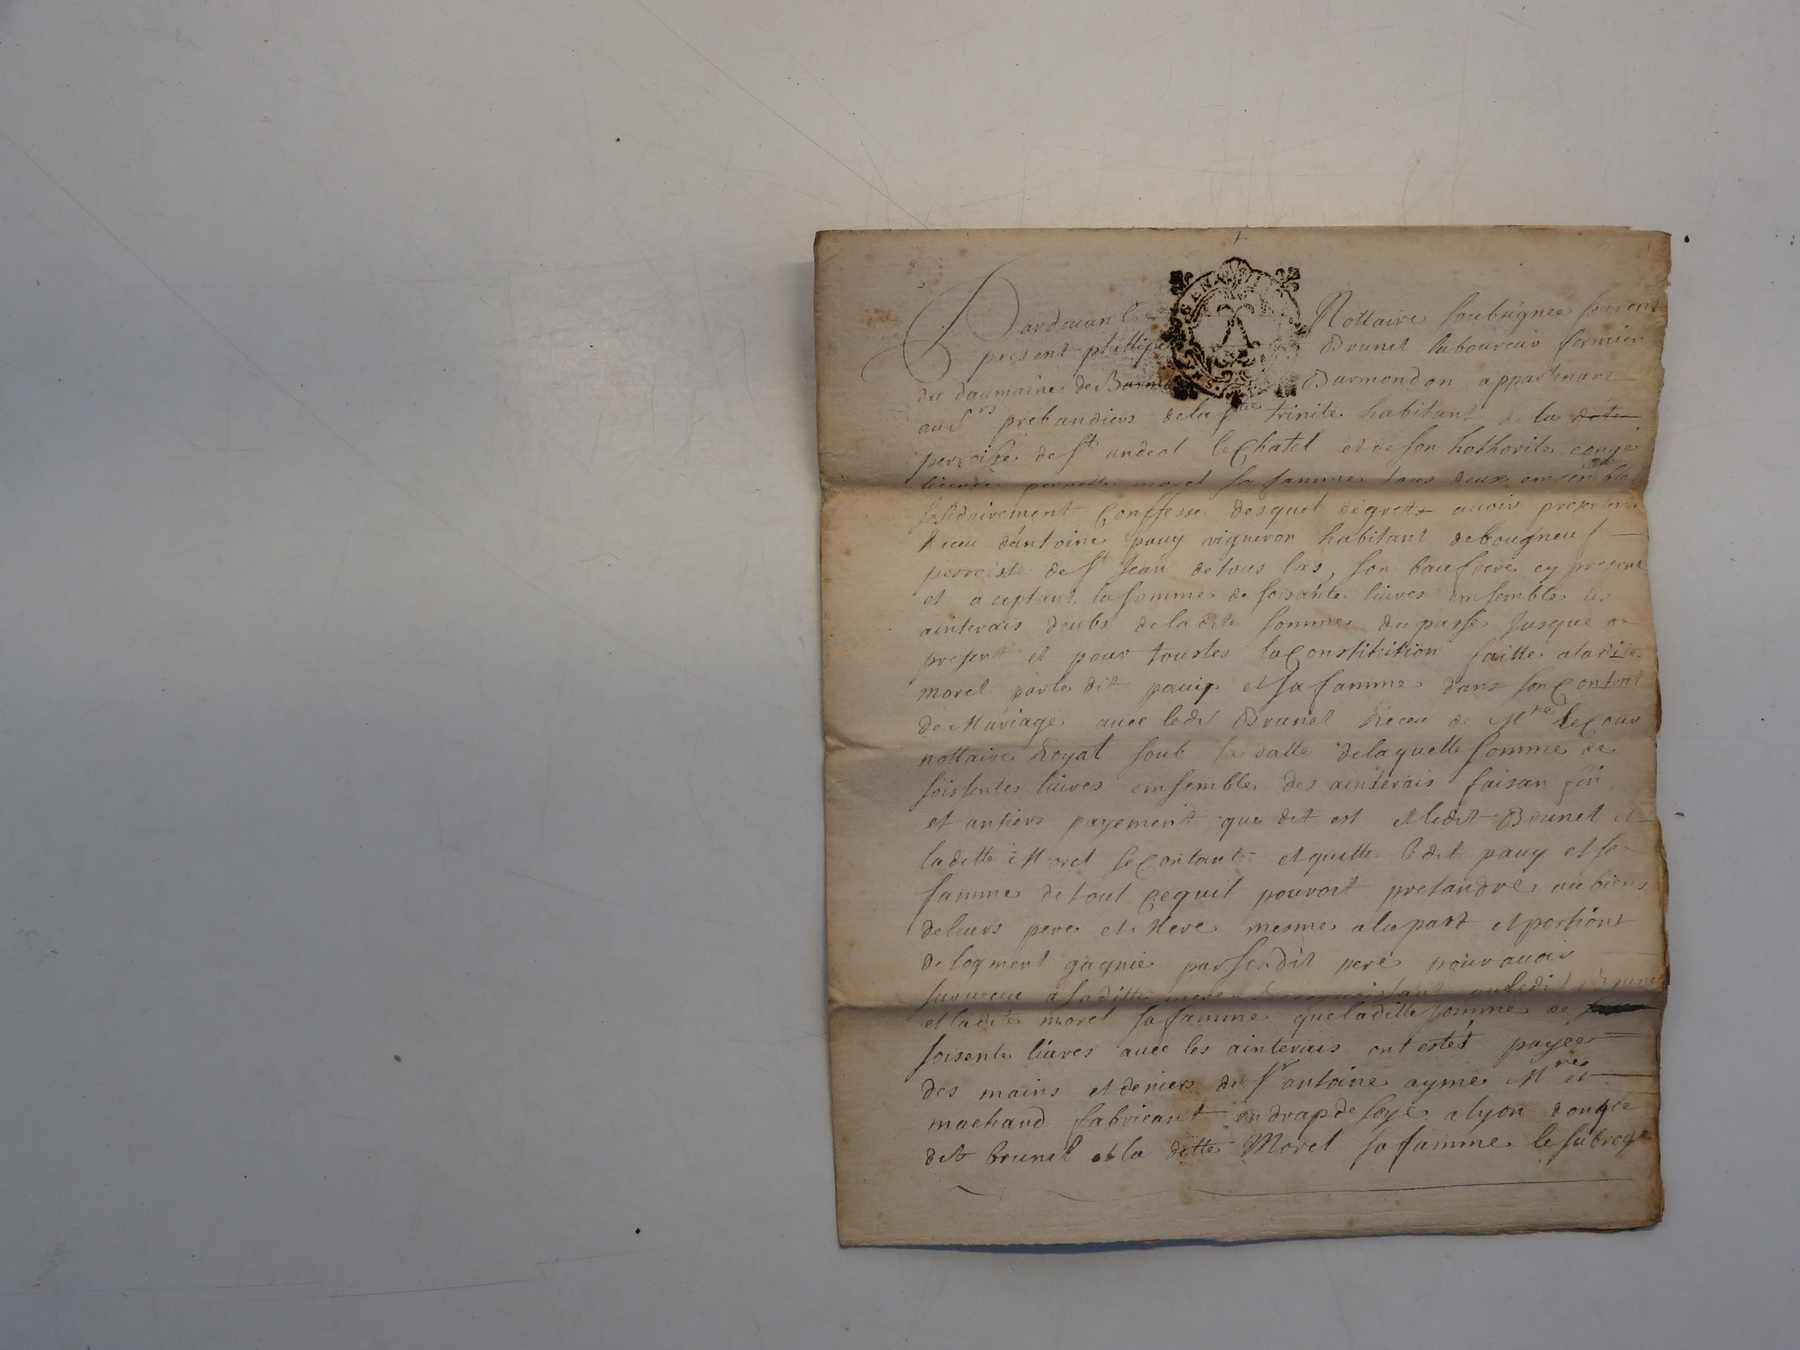 Pardevan le Nottaire soubsignee furent
present phillipe Brunet laboureur fermier
du daumaine de Barmondon appartenant
au Srs prebandiers de la ste trinite habitant la ditte
perroisse de St andeol le Chatel et de son hothorite conge
sa famme tous deux ensemble
solidairement Confesse desquel degrett avoir presentement
Receu dantoine pauy vigneron habitant debougneuf
perroisse de St Jean detous las, son baufrere cy present
et aceptant la somme de soisante liures ensembles les
ainterais deubs de la dite somme du passe Jusque a
present et pour toustes la Constitution faitte a la dite
morel par le dit pauy et sa famme dans son Contrat
de Mariage auec le dt Brunet Receu de Mtre le Cour
nottaire Royal soub sa datte de laquelle somme de
soissentes liures ensembles des ainterais faisan fin
et antiers payement que dit est et le dit Brunet et
laditte Morel se Contante et quitte le dit pauy et sa
famme de tout Cequil pouroit pretandre au biens
de leurs pere et Mere mesme a la part et portiont
de logment gagnie par son dit pere pour auoir
suruecu a saditte mere ledit Brunet
et la dite morel sa famme que la ditte somme de
soisente liures auec les ainterais ont estes payee
des mains et deniers de Sr antoine ayme Mre et
machand fabricant en drap de soye a lyon dont le
dit brunet et la ditte Morel sa famme le subroge